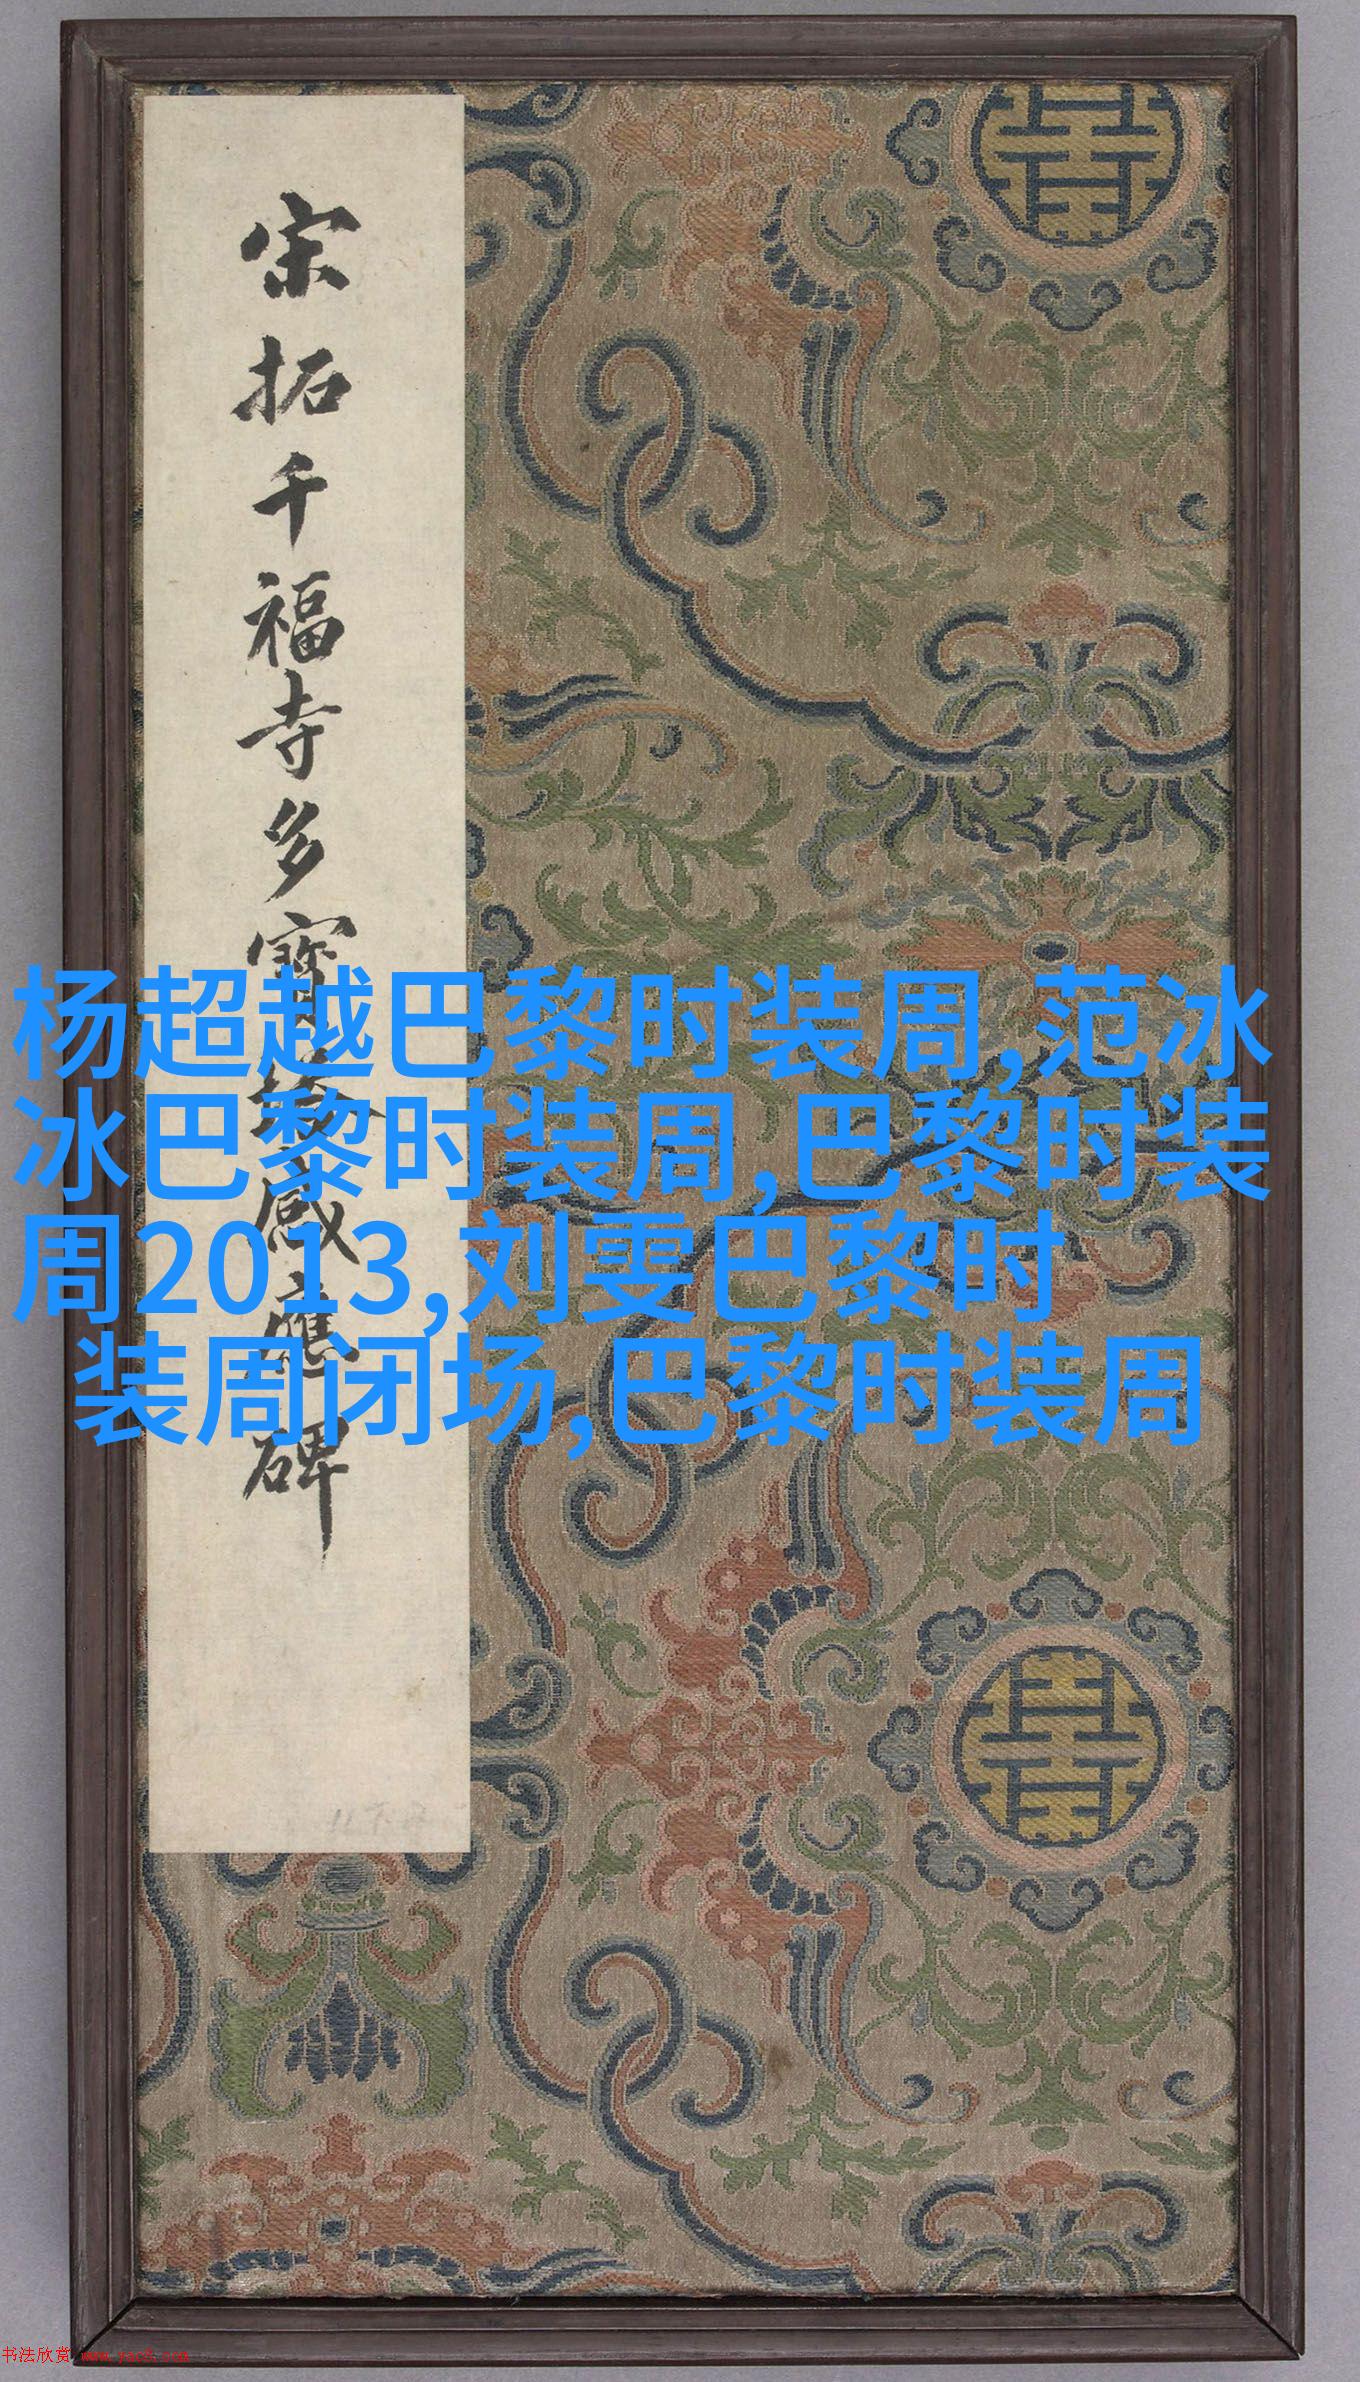 宋拓千福寺多寶塔感應碑
杨超越巴黎时装周,范冰
冰巴黎时装周,巴黎时装
周2013,刘雯巴黎时
装周闭场,巴黎时装周
书法欣赏 www.yac8.com